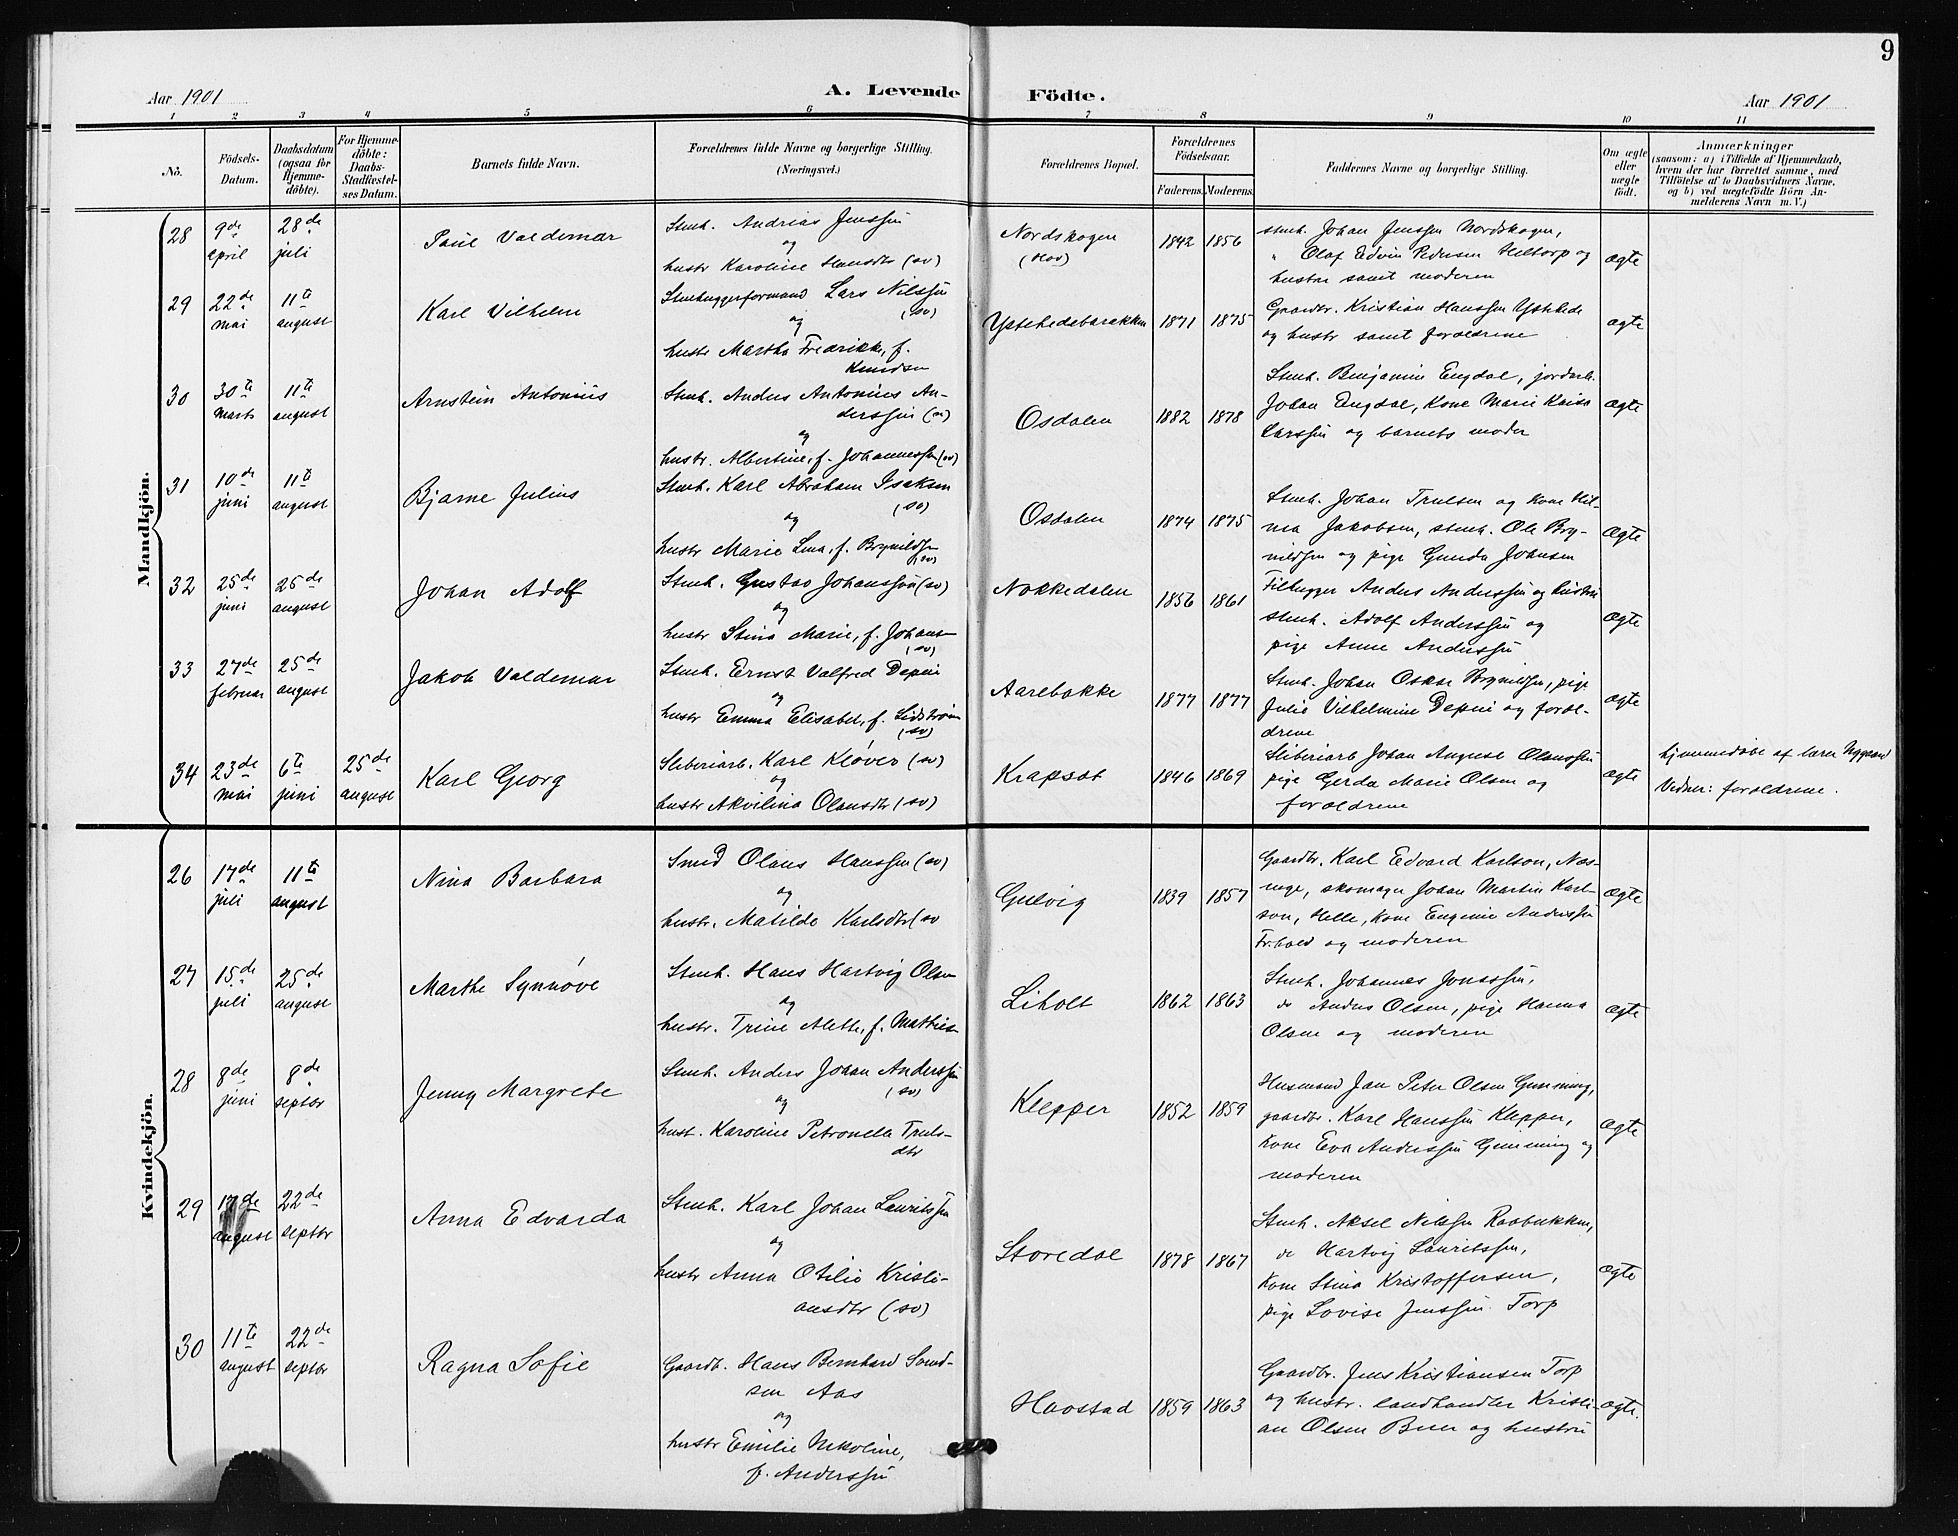 9
Aar 1901
A. Levende Födte.
Aar 1901
1 2 3 4 5 6 7 8 9 10 11
No.
Födsels-
Datum.
Daabsdatum
(ogsaa for
Hjemme-
döbte).
For Hjemme-
döbte:
Daabs-
Stadfæstel-
ses Datum.
Barnets fulde Navn.
Forældrenes fulde Navne og borgerlige Stilling.
(Næringsvei.)
Forældrenes Bopæl.
Forældrenes
Födselsaar.
Faderens. Moderens.
Faddernes Navne og borgerlige Stilling.
Om ægte
eller
uægte
födt.
Anmærkninger
(saasom: a) i Tilfælde af Hjemmedaab,
hvem der har forrettet samme, med
Tilföielse af to Daabsvidners Navne,
og b) ved uægtefödte Börn An-
melderens Navn m. V.)
Mandkjön.
28
9de
april
28de
juli
Paul Valdemar
Stenh. Andrias Jenssen
og
hustr Karoline Hansdtr (sv)
Nordskogen
(Hov)
1842 1856
stenh. Johan Jenssen Nordskogen,
" Olaf Edvin Pedersen Heltorp og
hustru samt moderen
ægte
29
22de
mai
11te
august
Karl Vilhelm
Stenhuggerformand Lars Nilssen
(sv)
og
hustr Martha Fredrikke, f.
Knudsen
Ystehedebarakken
1871 1875
Gaardbr. Kristian Hanssen Ystehede
og hustr samt forældrene
ægte
30
30te
marts
11te
august
Arnstein Antonius
Stenh. Anders Antonius An-
derssen (sv)
og
hustr. Albertine, f. Johannessen (sv)
Osdalen
1882 1878
Stenh. Benjamin Engdal, jordarb.
Johan Engdal, Kone Marie Kaisa
Larssen og barnets moder
ægte
31
10de
juni
11te
august
Bjarne Julius
Stenh. Karl Abraham Isaksen
(sv)
og
hustr Marie Lina, f. Brynildsen
(sv)
Osdalen
1874 1875
Stenh. Johan Trulsen og Kone Hil-
ma Jakobsen, stenh. Ole Bry-
nildsen og pige Gunda Johansen
ægte
32
25de
juni
25de
august
Johan Adolf
Stenh. Gustav Johanssen (sv)
og
hustr Stina Marie, f. Johansen
(sv)
Nokkedalen
1856 1861
Filhugger Anders Anderssen og hustru
stenh. Adolf Anderssen og
pige Anne Anderssen
ægte
33
27de
februar
25de
august
Jakob Valdemar
Stenh. Ernst Valfred Depui
og
hustr Emma Elisabet, f. Lidstrøm
(sv)
Aarebakke
1877 1877
Stenh. Johan Oskar Brynildsen, pige
Julie Vilhelmine Depui og foræl-
drene
ægte
34
23de
mai
6te
juni
25de
august
Karl Georg
Sliberiarb. Karl Kløver (sv)
og
hustr Akvilina Olausdtr (sv)
Krapsæt
1846 1869
Sliberiarb Johan August Olaussen
pige Gerda Marie Olsen og
forældrene
ægte
hjemmedøbt af lærer Nygaard
Vidner: forældrene.
Kvindekjön.
26
17de
juli
11te
august
Nina Barbara
Smed Olaus Hanssen (sv)
og
hustr. Matilde Karlsdtr (sv
Gulvig
1839 1857
Gaardbr. Karl Edvard Karlson, Næs-
inge, skomager Johan Martin Karl-
son, Helle, Kone Eugenie Anderssen
Fr.hald og moderen
ægte
27
15de
juli
25de
august
Marthe Synnøve
Stenh. Hans Hartvig Olsen
og
hustr. Trine Alette, f. Mathisen
Liholt
1862 1863
Stenh. Johannes Jonassen,
do Anders Olsen, pige Hanna
Olsen og moderen
ægte
28
8de
juni
8de
septbr
Jenny Margrete
Stenh. Anders Johan Anderssen
(sv)
og
hust. Karoline Petronella Truls-
dtr
Klepper
1852 1859
Husmand Jan Peter Olsen Gimming,
gaardbr. Karl Hanssen Klepper,
Kone Eva Anderssen Gimming og
moderen
ægte
29
17de
august
22de
septbr
Anna Edvarda
Stenh. Karl Johan Lauritssen
og
hustr Anna Otilie Kristi-
ansdtr (sv)
Storedal
1878 1867
Stenh. Aksel Nilssen Raabækken,
do Hartvig Lauritssen,
Kone Stina Kristoffersen,
pige Lovise Jenssen Torp
ægte
30
11te
august
22de
septbr
Ragna Sofie
Gaardb. Hans Bernhard Sand-
sen Aas
og
hustr Emilie Nikoline,
f. Anderssen
Havstad
1859 1863
Gaardbr. Jens Kristiansen Torp
og hustr. landhandler Kristi-
an Olsen Buer og hustru
ægte.